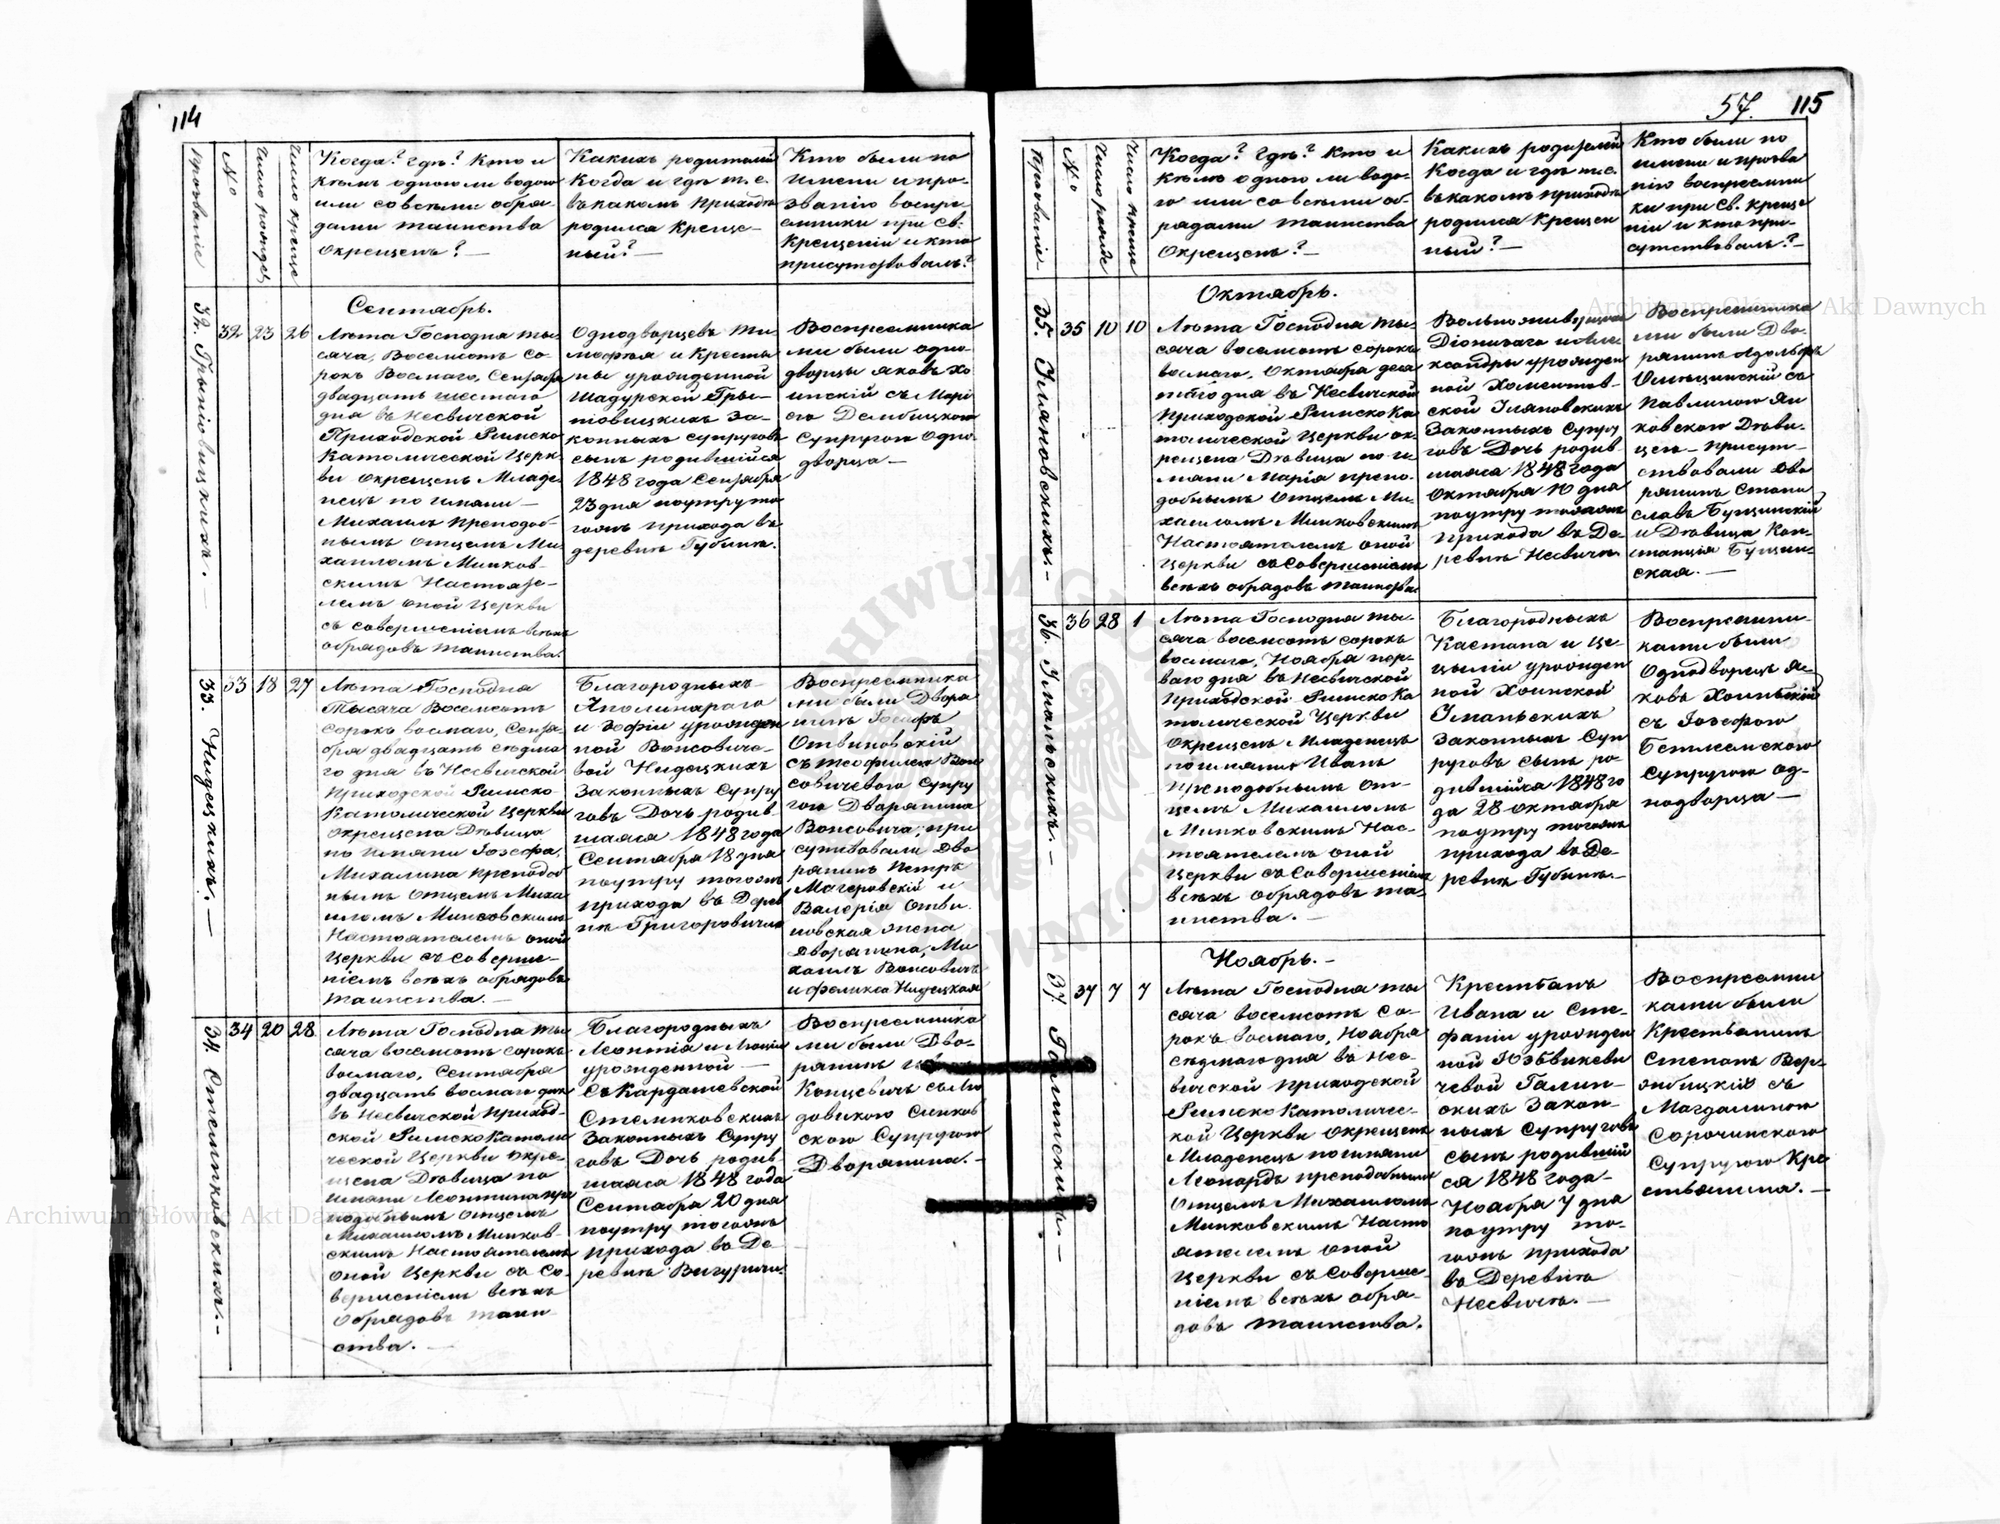 114
Прозваніе
№
Число рожде.
Число креще
Когда? Гдѣ? Кто и
кѣмъ одною ли водою
или со всѣми обря-
дами таинства
окрещенъ? —
Какихъ родителей
Когда и гдѣ т. е.
въ какомъ приходѣ
родился креще-
ный? —
Кто были по
имени и про-
званію воспрі-
емники при Св.
Крещеніи и кто
присутствовалъ?
32.
32
23
26
Сентябрь.
Лѣта Господня ты-
сяча Восемсотъ со-
рокъ Восмаго, Сентября
двадцать шестаго
дня въ Несвичской
Приходской Римско
Католической Церк-
ви окрещенъ Младе-
нецъ по имяни —
Михаилъ преподоб-
нымъ Отцемъ Ми-
хаиломъ Минков-
скимъ Настояте-
лемъ оной Церкви
съ совершеніемъ всѣхъ
обрядовъ таинства.
Однодворцевъ Ти-
мофтея и Кресты-
ны урожденной
Шадурской
законныхъ супруговъ
сынъ родившійся
1848 года Сентября
23 дня поутру то
гожъ прихода въ
деревнѣ Губинѣ.
Воспреемника
ми были одно-
дворцы Яковъ Хо
инскій съ Марі
ею Дембицкою
Супругою Одно
дворца —
33. Нидецкихъ. —
33
18
27
Лѣта Господня
Тысяча Восемсотъ
сорокъ восмаго, Сентя-
бря двадцать седма-
го дня въ Несвичской
Приходской Римско
Католической Церкви
окрещена Дѣвица
по имяни Іозефа,
Михалина преподоб
нымъ Отцемъ Миха
иломъ Минковскимъ
Настоятелемъ оной
Церкви съ Соверше-
ніемъ всѣхъ обрядовъ
таинства. —
Благородныхъ
Аполинараго
и Зофіи урожден
ной Вонсовиче-
вой Нидецкихъ
Законныхъ Супру
говъ Дочь родив
шаяся 1848 года
Сентября 18 дня
поутру тогожъ
прихода въ Дерев
нѣ Григоровичахъ
Воспреемника
ми были Дворя
нинъ Іосифъ
Отвиновскій
съ Теофилею Вон
совичевою Супру
гою Дворянина
Вонсовича, при
сутствовали Дво
рянинъ Петръ
Магеровскій и
Валерія Отви
новская жена
Дворянина, Ми
хаилъ Вонсовичъ
и Феликса Нидецкая
34.
34
20
28
Лѣта Господня ты
сяча восемсотъ сорокъ
восмаго, Сентября
двадцать восмаго дня
въ Несвичской приход-
ской Римско Католи
ческой Церкви окре-
щена Дѣвица по
имяни Леонтина пре
подобнымъ Отцемъ
Михаиломъ Минков-
скимъ Настоятелемъ
оной Церкви съ Со-
вершеніемъ всѣхъ
обрядовъ таин-
ства. —
Благородныхъ
Леонтія и
урожденной —
Кардашевской
Законныхъ Супру
говъ Дочь родив
шаяся 1848 года
Сентября 20 дня
поутру тогожъ
прихода въ Де-
ревнѣ Вигуричи.
Воспреемника
ми были Дво-
рянинъ
Концевичъ съ Лю
довикою
скою Супругою
Дворянина. —
57. 115
Прозваніе —
№
Число рожде
Число креще
Когда? Гдѣ? Кто и
кѣмъ одною ли водо-
ю или со всѣми об-
рядами таинства
Окрещенъ? —
Какихъ родителей
Когда и гдѣ т.е.
въ какомъ приходѣ
родился крещен
ный? —
Кто были по
имени и прозва
нію воспреемни
ки при Св. Креще
ніи и кто при-
сутствовалъ? —
35. Уляновскихъ. —
35
10
10
Октябрь.
Лѣта Господня ты-
сяча восемсотъ сорокъ
восмаго, Октября деся
таго дня въ Несвичской
Приходской Римско Ка
толической Церкви ок-
рещена Дѣвица по и-
мяни Марія препо-
добнымъ Отцемъ Ми-
хаиломъ Минковскимъ
Настоятелемъ оной
Церкви съ Совершеніемъ
всѣхъ обрядовъ таинства
Діонизаго и Але
ксандры урожден
ной Хоментов-
ской Уляновскихъ
Законныхъ Супру
говъ Дочь родив-
шаяся 1848 года
Октября 10 дня
поутру тогожъ
прихода въ Де-
ревнѣ Несвичъ.
Воспреемника
ми были Дво-
рянинъ Адольфъ
съ
Павлиною Ян
ковскою Дѣви-
цею — присут-
ствовали Дво
рянинъ Стани
славъ Бущинскій
и Дѣвица Кон-
станція Бущин-
ская. —
36.
36
28
1
Лѣта Господня ты-
сяча восемсотъ сорокъ
восмаго, Ноября пер-
ваго дня въ Несвичской
приходской Римско Ка
толической Церкви
окрещенъ Младенецъ
по имяни Иванъ
Преподобнымъ От-
цемъ Михаиломъ
Минковскимъ Нас-
тоятелемъ оной
Церкви съ Совершеніемъ
всѣхъ обрядовъ та-
инства. —
Благородныхъ
Каетана и Це-
цыліи урожден
ной Хоинской
Законныхъ Суп
руговъ сынъ ро-
дившійся 1848 го
да 28 октября
поутру тогожъ
прихода въ Де-
ревнѣ Губинѣ. —
Воспреемни-
ками были
Однодворецъ Я-
ковъ Хоинскій
съ Іозефою
Супругою од-
нодворца —
37. Галинскихъ. —
37
7
7
Ноябрь. —
Лѣта Господня ты
сяча восемсотъ со-
рокъ восмаго, Ноября
седмаго дня въ Нес-
вичской приходской
Римско Католичес-
кой Церкви окрещенъ
Младенецъ по имяни
Леонардъ преподобнымъ
Отцемъ Михаиломъ
Минковскимъ Насто
ятелемъ оной
Церкви съ Соверше-
ніемъ всѣхъ обря-
довъ таинства.
Крестьянъ
Ивана и Сте-
фаніи урожден
ной
чевой Галин-
скихъ Закон-
ныхъ Супруговъ
сынъ родившій
ся 1848 года —
Ноября 7 дня
поутру то-
гожъ прихода
въ Деревнѣ
Несвичъ. —
Воспреемни
ками были
Крестьянинъ
Степанъ Вер-
жбицкій съ
Магдалиною
Сорочинскою
Супругою Кре
стьянина. —
Archiwum Główne Akt Dawnych
Archiwum Główne Akt Dawnych